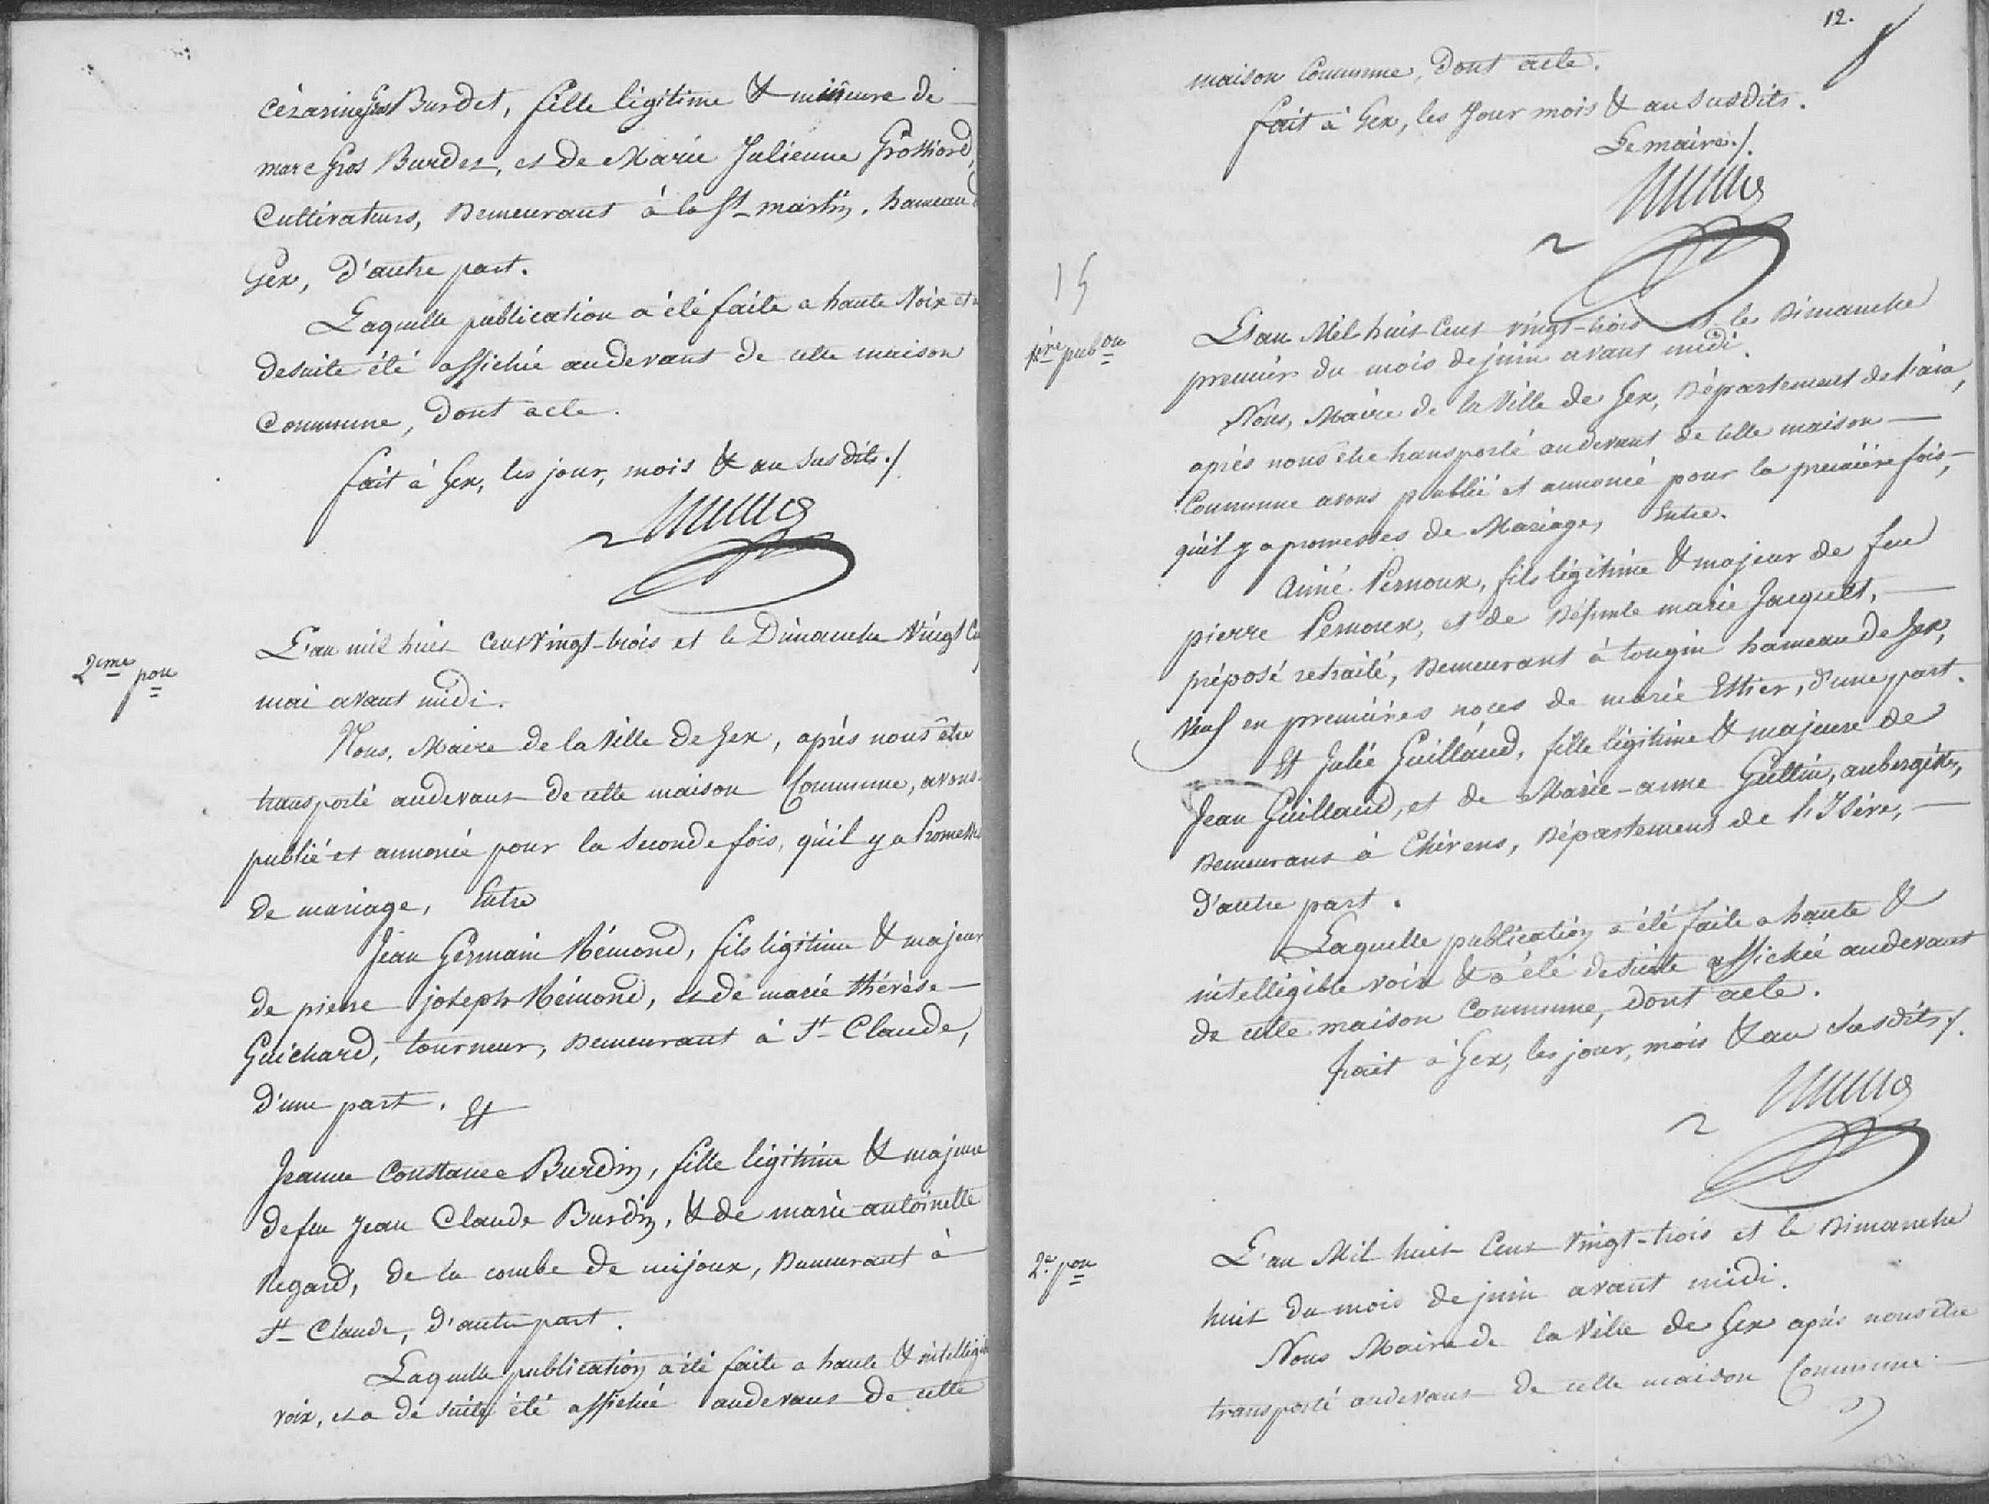 Cézarine Gros Burdet, fille légitime & mineure de
marc Gros Burdet, et de Marie Julienne Grossiord,
Cultivateurs, Demeurant à la St martin, hameau
Gex, D'autre part.
Laquelle publication a été faite a haute Voix et
desuite été affichée audevant de cette maison
Commune, Dont acte.
fait à Gex, les jour, mois & an susdits./.
2eme pon
L'an mil huit cent vingt-trois et le Dimanche Vingt
mai avant midi.
Nous, Maire de la Ville de Gex, après nous être
transporté audevant de cette maison Commune, avons
publié et annoncé pour la seconde fois, qu'il y a Promesses
de mariage, Entre
Jean Germain Rémond, fils légitime & majeur
de pierre joseph Rémond, et de marie thérèse
Guichard, tourneur, Demeurant à St Claude,
d'une part. Et
Jeanne Constance Burdin, fille légitime & majeure
de feu Jean Claude Burdin, & de marie antoinette
Regard, de la combe de mijoux, Demeurant à
St Claude, d'autre part.
Laquelle publication a été faite a haute & intelligi
voix, et a de suite été affichée audevant de cette
12.
maison Commune, Dont acte.
fait à Gex, les Jour mois & an susdits.
Le maire./.
15
1ère pubon
L'an Mil huit Cent vingt-trois et le Dimanche
premier du mois de juin avant midi.
Nous, Maire de la Ville de Gex, Département de l'ain,
après nous être transporté audevant de cette maison
Commune avons publié et annoncé pour la première fois,
qu'il y a promesses de Mariage, Entre.
Aimé Pernoux, fils légitime & majeur de feu
pierre Pernoux, et de Défunte marie Jacquet,
préposé retraité, Demeurant à tougin hameau de Gex,
Veuf en premières noces de marie Ettier, d'une part.
Et Julie Guillaud, fille légitime & majeure de
Jean Guillaud, et de Marie-anne Gullin, aubergiste,
Demeurans à Chirens, Département de l'Isère,
D'autre part.
Laquelle publication a été faite a haute &
intelligible voix & a été desuite affichée audevant
de cette maison Commune, Dont acte.
fait à Gex, les jour, mois & an susdits./.
2e pon
L'an Mil huit Cent Vingt-trois et le Dimanche
huit du mois de juin avant midi.
Nous Maire de la Ville de Gex après nous être
transporté audevant de cette maison Commune